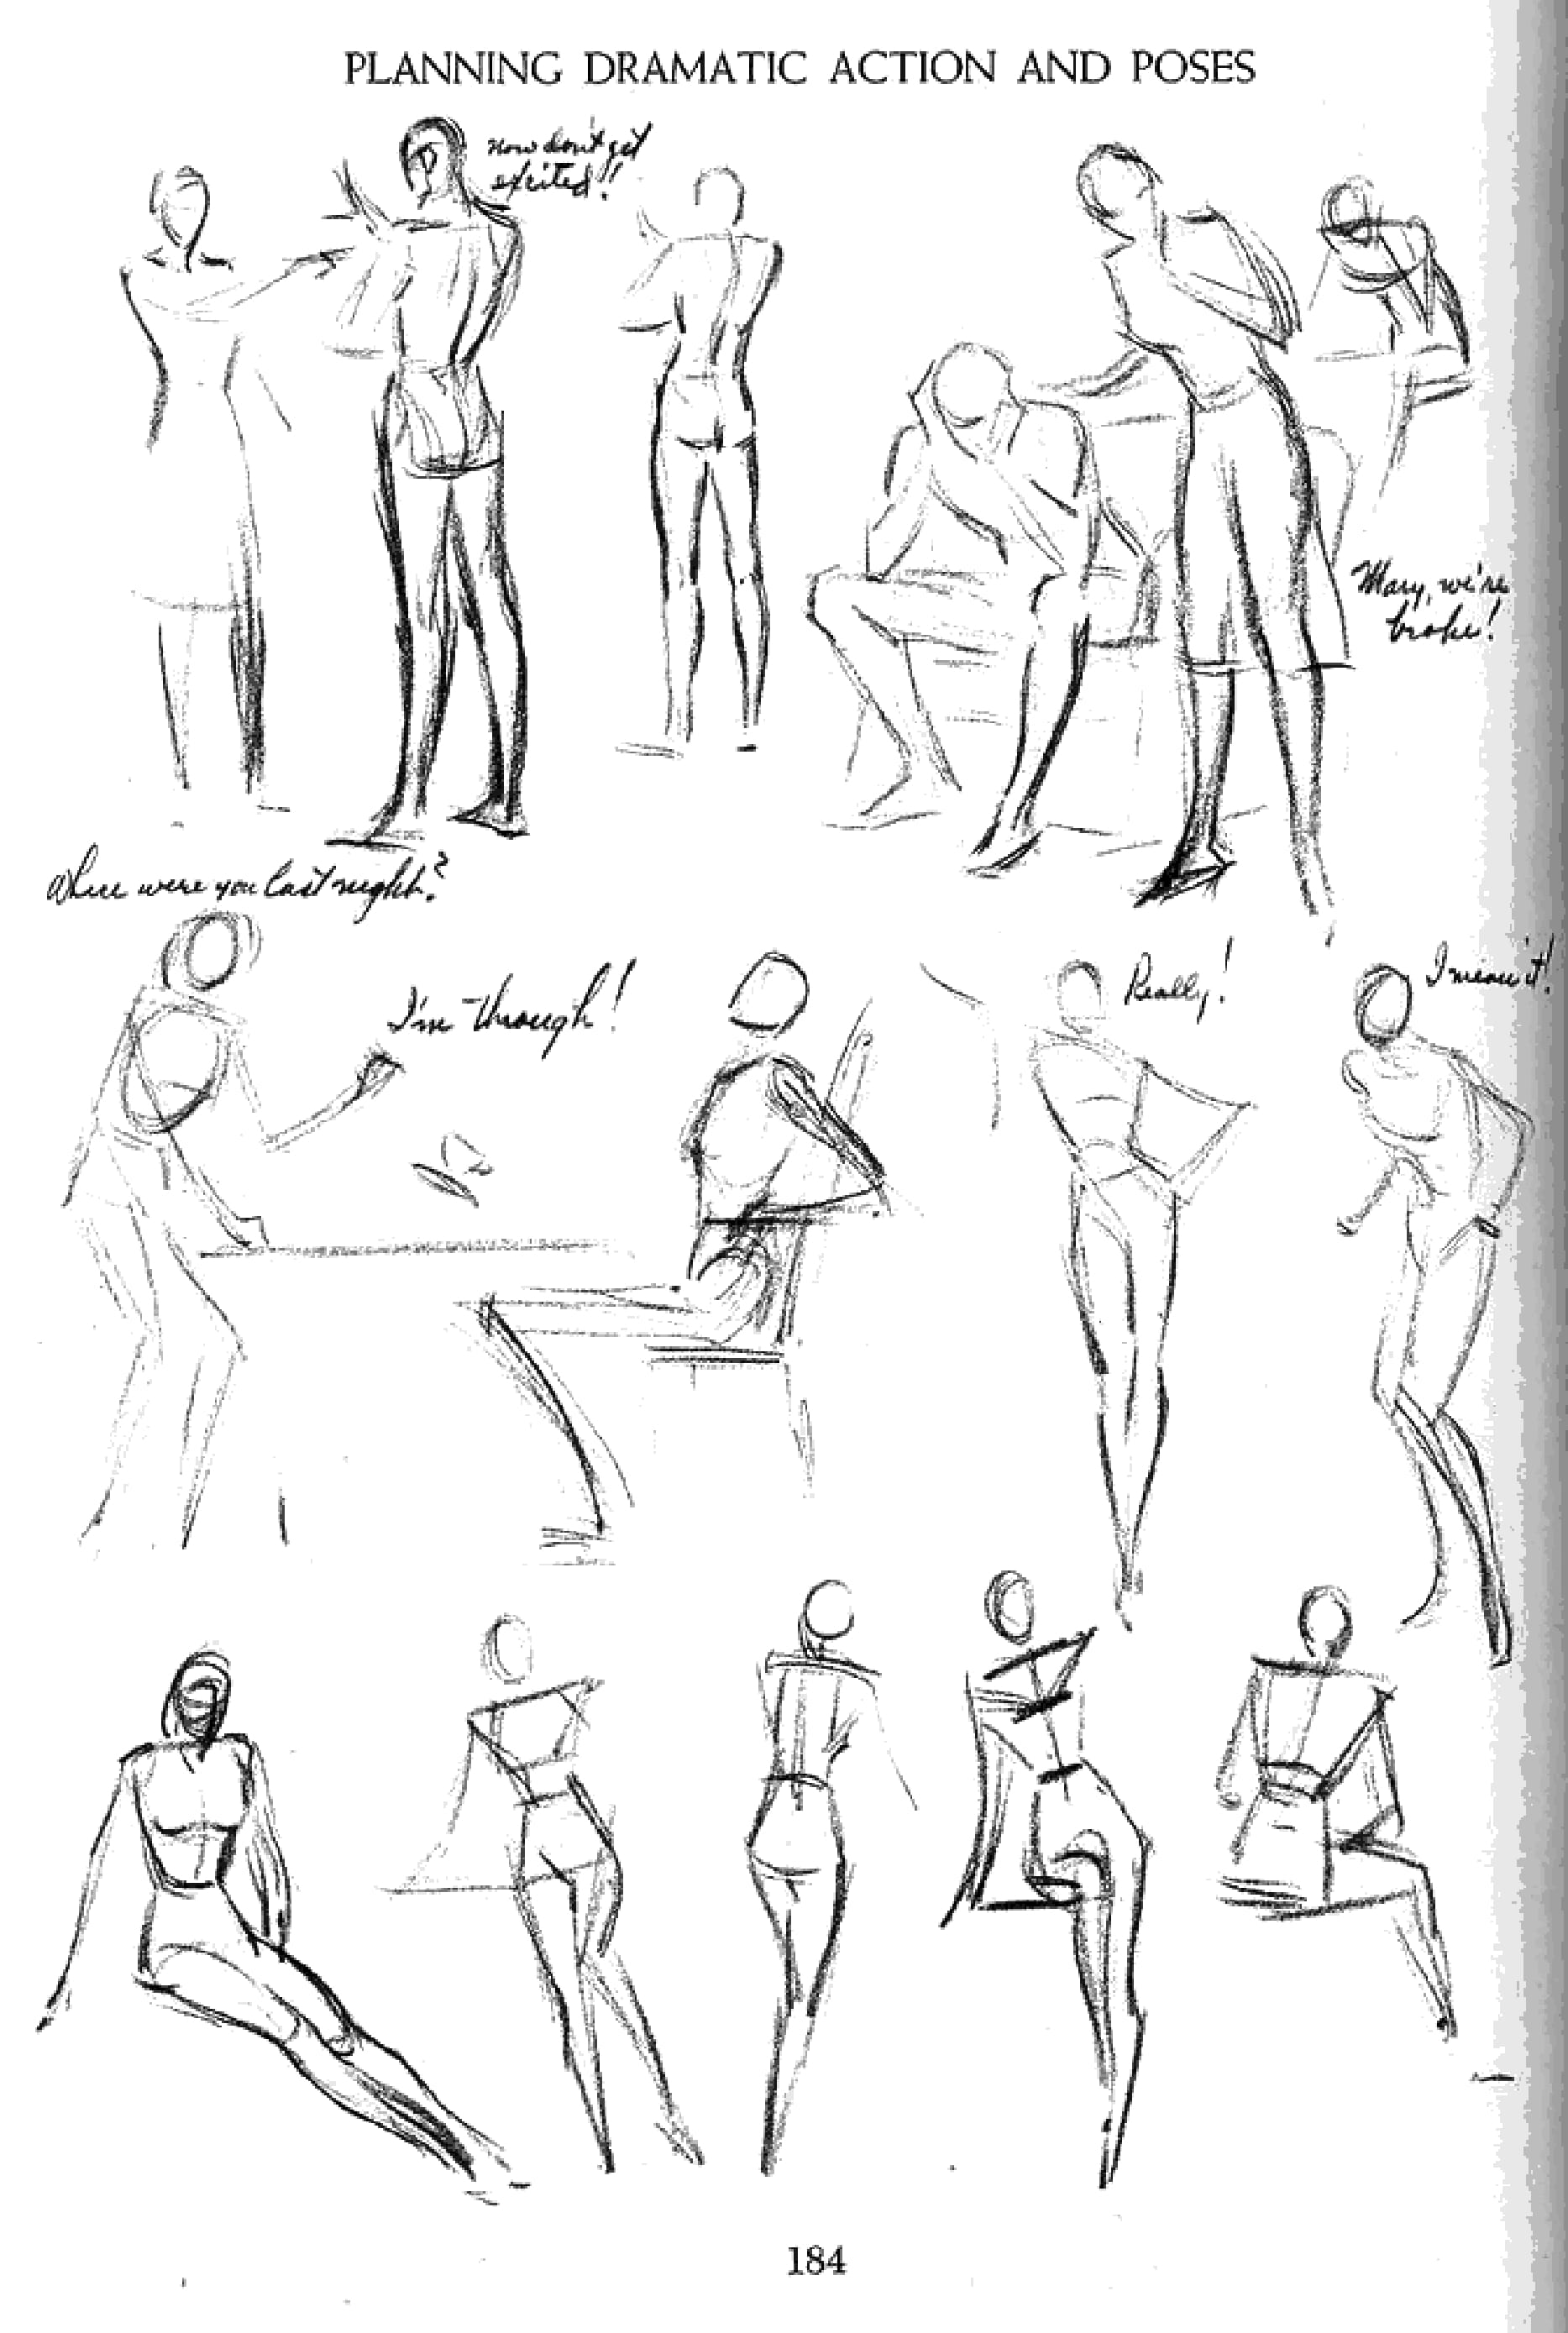 PLANNING DRAMATIC ACTION AND POSES
now don't get
excited!!
Mary, we're
broke!
Where were you last night?
I'm through!
Really!
I mean it!
184